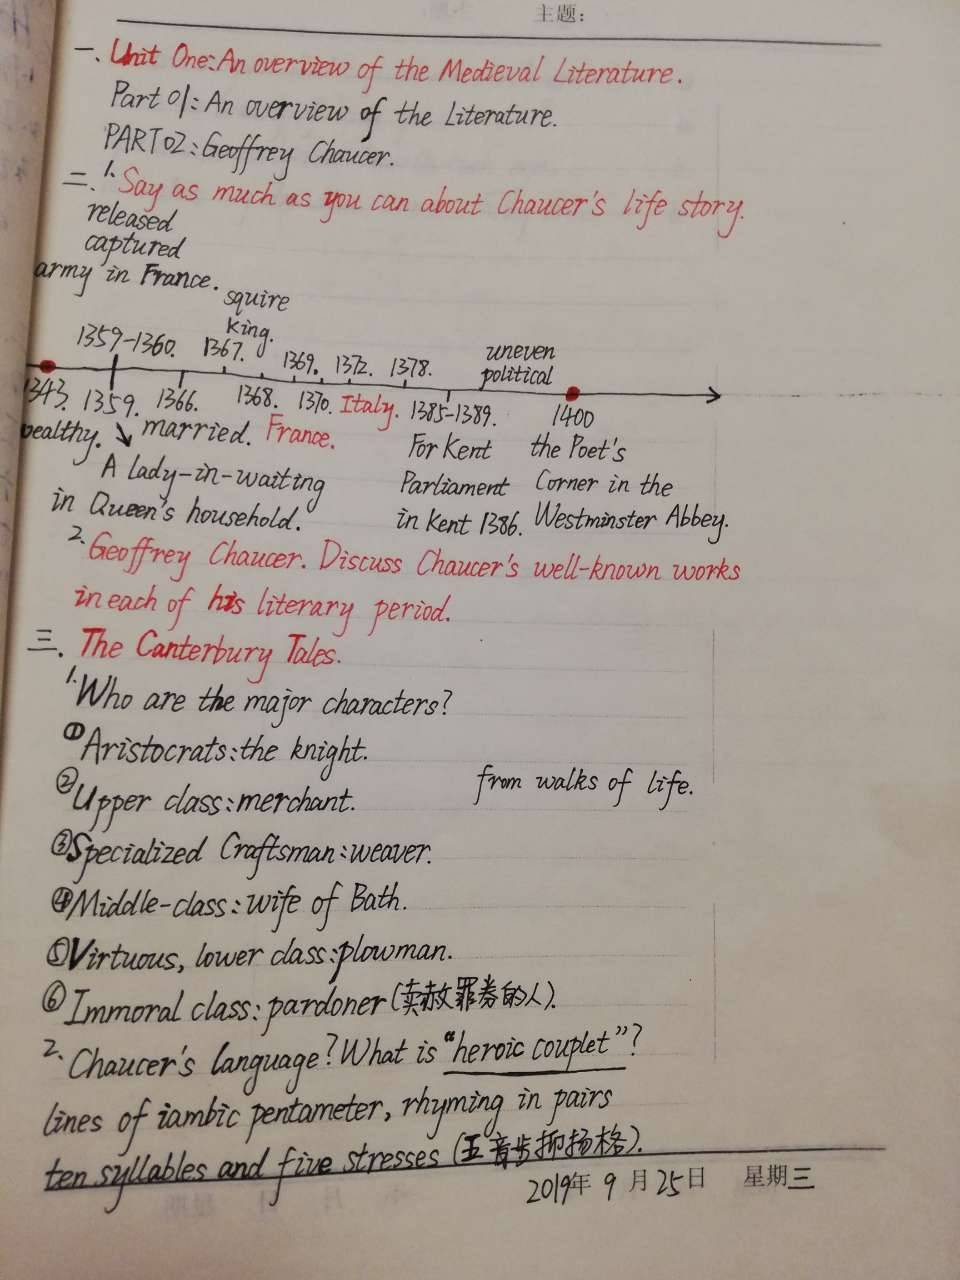 主题:
一、Unit One:An overview of the Medieval Literature.
Part 01:An overview of the Literature.
PART02:Geoffrey Chaucer.
二、1、Say as much as you can about Chaucer's life story.
released
captured
army in France.
squire
king.
1359-1360. 1367. 1369. 1372. 1378. uneven
political
1343. 1359. 1366. 1368. 1370. Italy. 1385-1389. 1400
wealthy. ↘ married. France. For Kent the Poet's
A lady-in-waiting Parliament Corner in the
in Queen's household. in Kent 1386. Westminster Abbey.
2、Geoffrey Chaucer. Discuss Chaucer's well-known works
in each of his literary period.
三. The Canterbury Tales.
1.Who are the major characters?
①Aristocrats:the knight.
②Upper class:merchant. from walks of life.
③Specialized Craftsman:weaver.
④Middle-class:wife of Bath.
⑤Virtuous, lower class:plowman.
⑥Immoral class:pardoner(卖赦罪券的人).
2、Chaucer's language?What is "heroic couplet"?
lines of iambic pentameter, rhyming in pairs
ten syllables and five stresses (五音步抑扬格).
2019年 9 月 25日 星期三